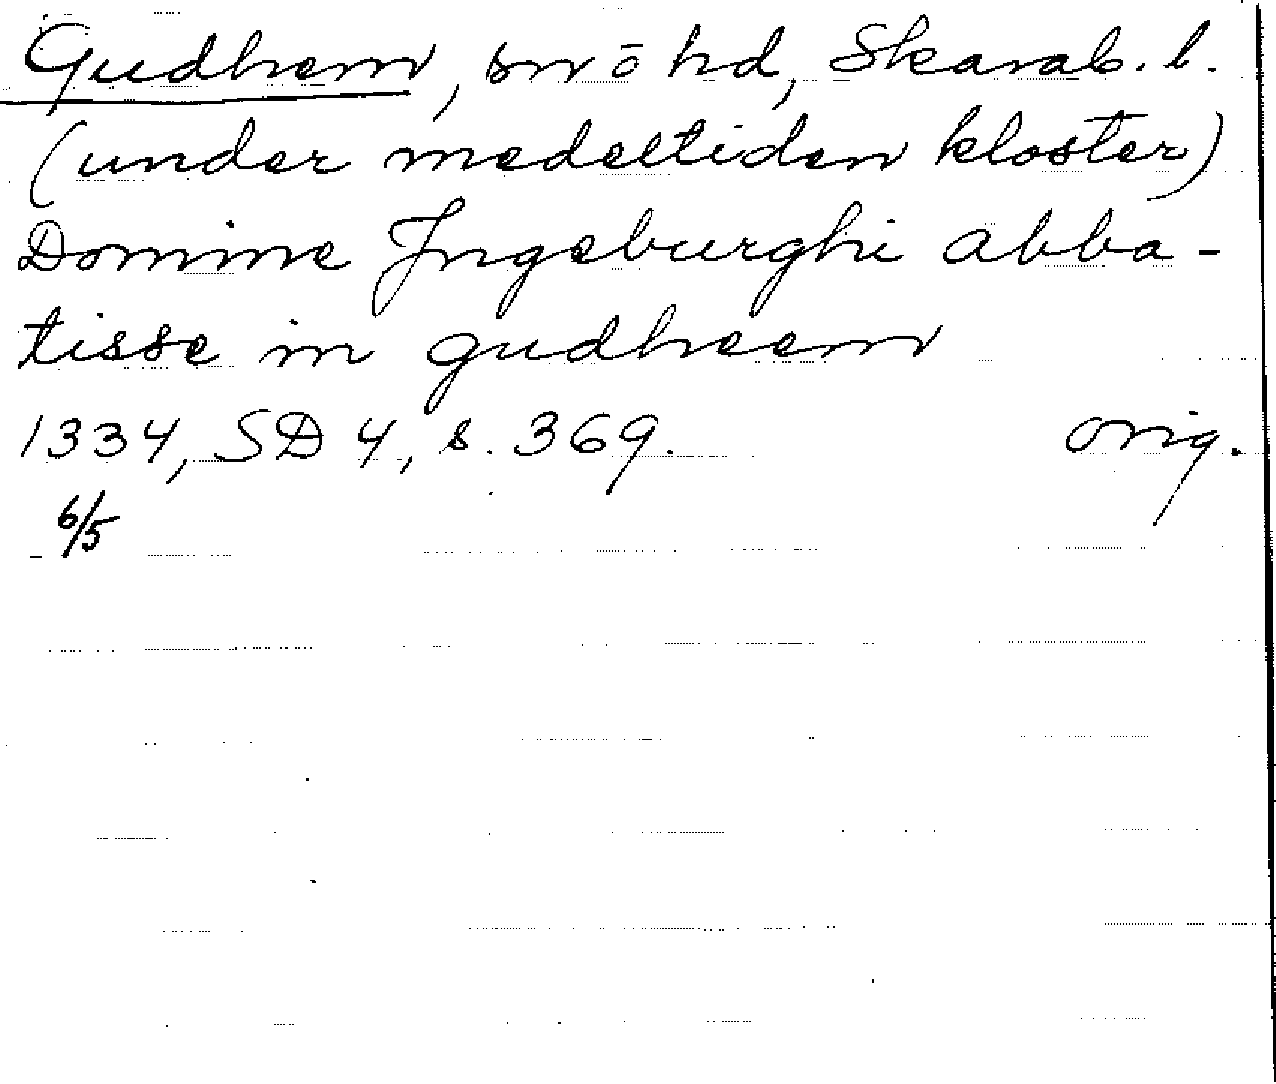 Gudhem, sn ō hd, Skarab. l.
(under medeltiden kloster)
Domine Jngeburghi abba-
tisse in gudheem
1334, SD 4, s. 369. orig.
6/5